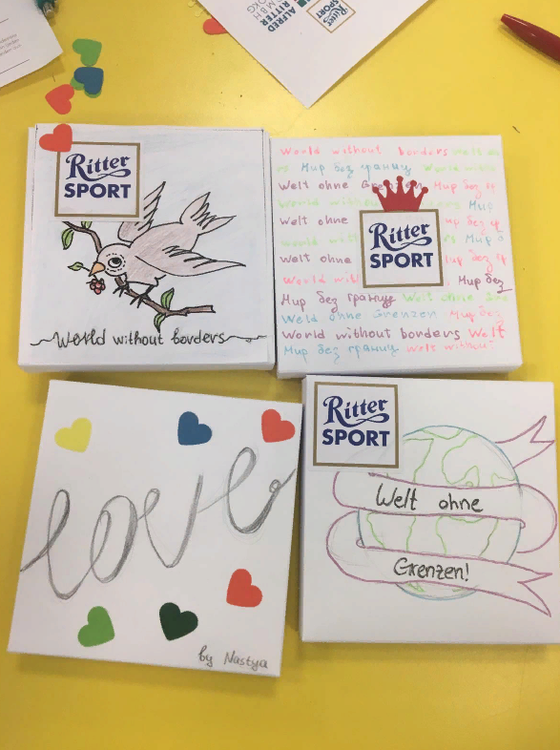 Ritter
SPORT
ALFRED
RITTER
Ritter
SPORT
World without borders
World without borders Welt
Мир без границ World
Welt ohne Мир без
World Мир
Welt ohne без
World
Welt ohne без
World Мир без
Мир без границ Welt ohne
Weld ohne Grenzen Мир без
World without borders Welt
Мир без границ Welt without
Ritter
SPORT
love
by Nastya
Ritter
SPORT
Welt ohne
Grenzen!